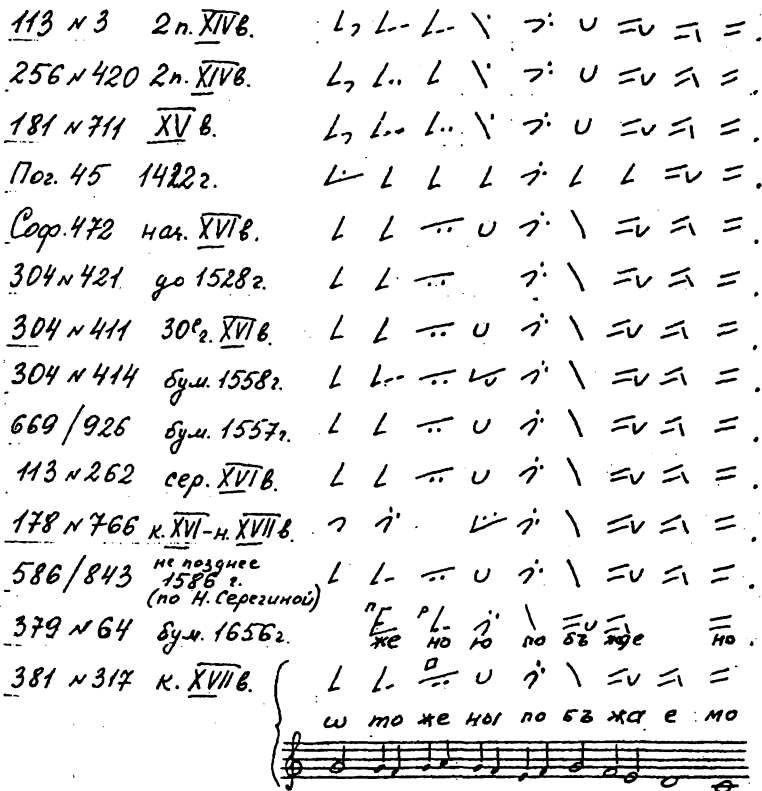 113 N 3 2 п. XIV в.
256 N 420 2 п. XIV в.
181 N 711 XV в.
Пог. 45 1422 г.
Соф. 472 нач. XVI в.
304 N 421 до 1528 г.
304 N 411 30е г. XVI в.
304 N 414 бум. 1558 г.
669/926 бум. 1557 г.
113 N 262 сер. XVI в.
178 N 766 к. XVI - н. XVII в.
586/843 не позднее 1586 г.
(по Н. Серегиной)
379 N 64 бум. 1656 г.
же но ю по бъ жде но.
381 N 317 к. XVII в.
ш то же ны по бъ жа е мо